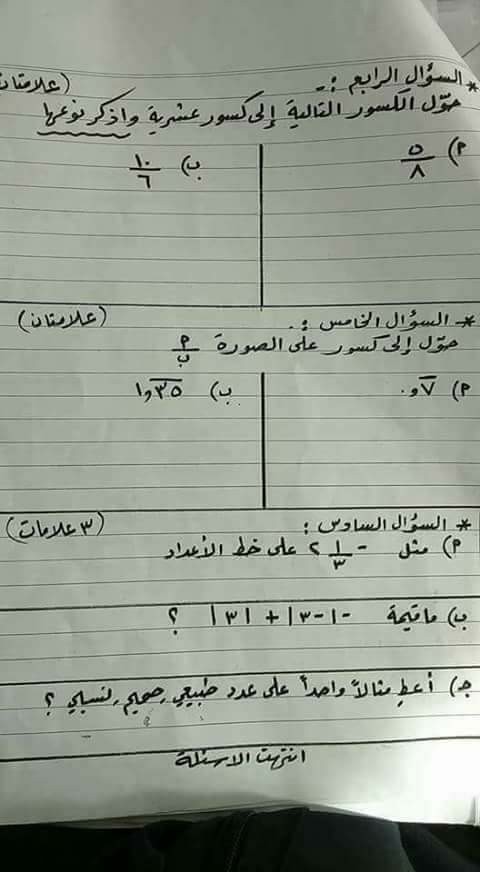 * السؤال الرابع :- (علامتان
حوّل الكسور التالية إلى كسور عشرية واذكر نوعها
P) ٥/٨ ب) ١٠/٦
* السؤال الخامس :. (علامتان)
حوّل إلى كسور على الصورة P/ب
P) ٠و٧̅ ب) ١و٣̅٥̅
* السؤال السادس : (٣ علامات)
P) مثل -٢ ١/٣ على خط الأعداد
ب) ما قيمة -|-٣| + |٣| ؟
جـ) أعطِ مثالاً واحداً على عدد طبيعي، صحيح، نسبي ؟
انتهت الاسئلة